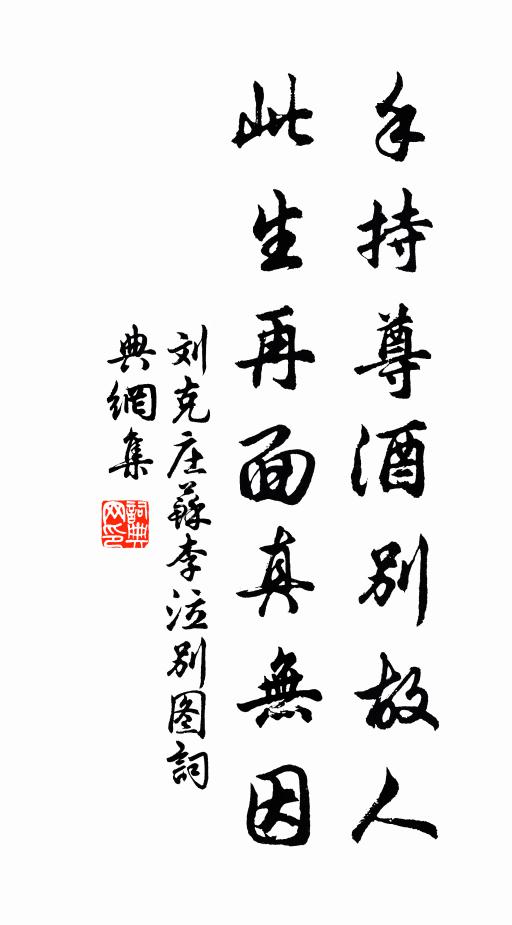 手持尊酒別故人
此生再面真無因
刘克庄蘇李泣別图詞
典網集
詞典網印